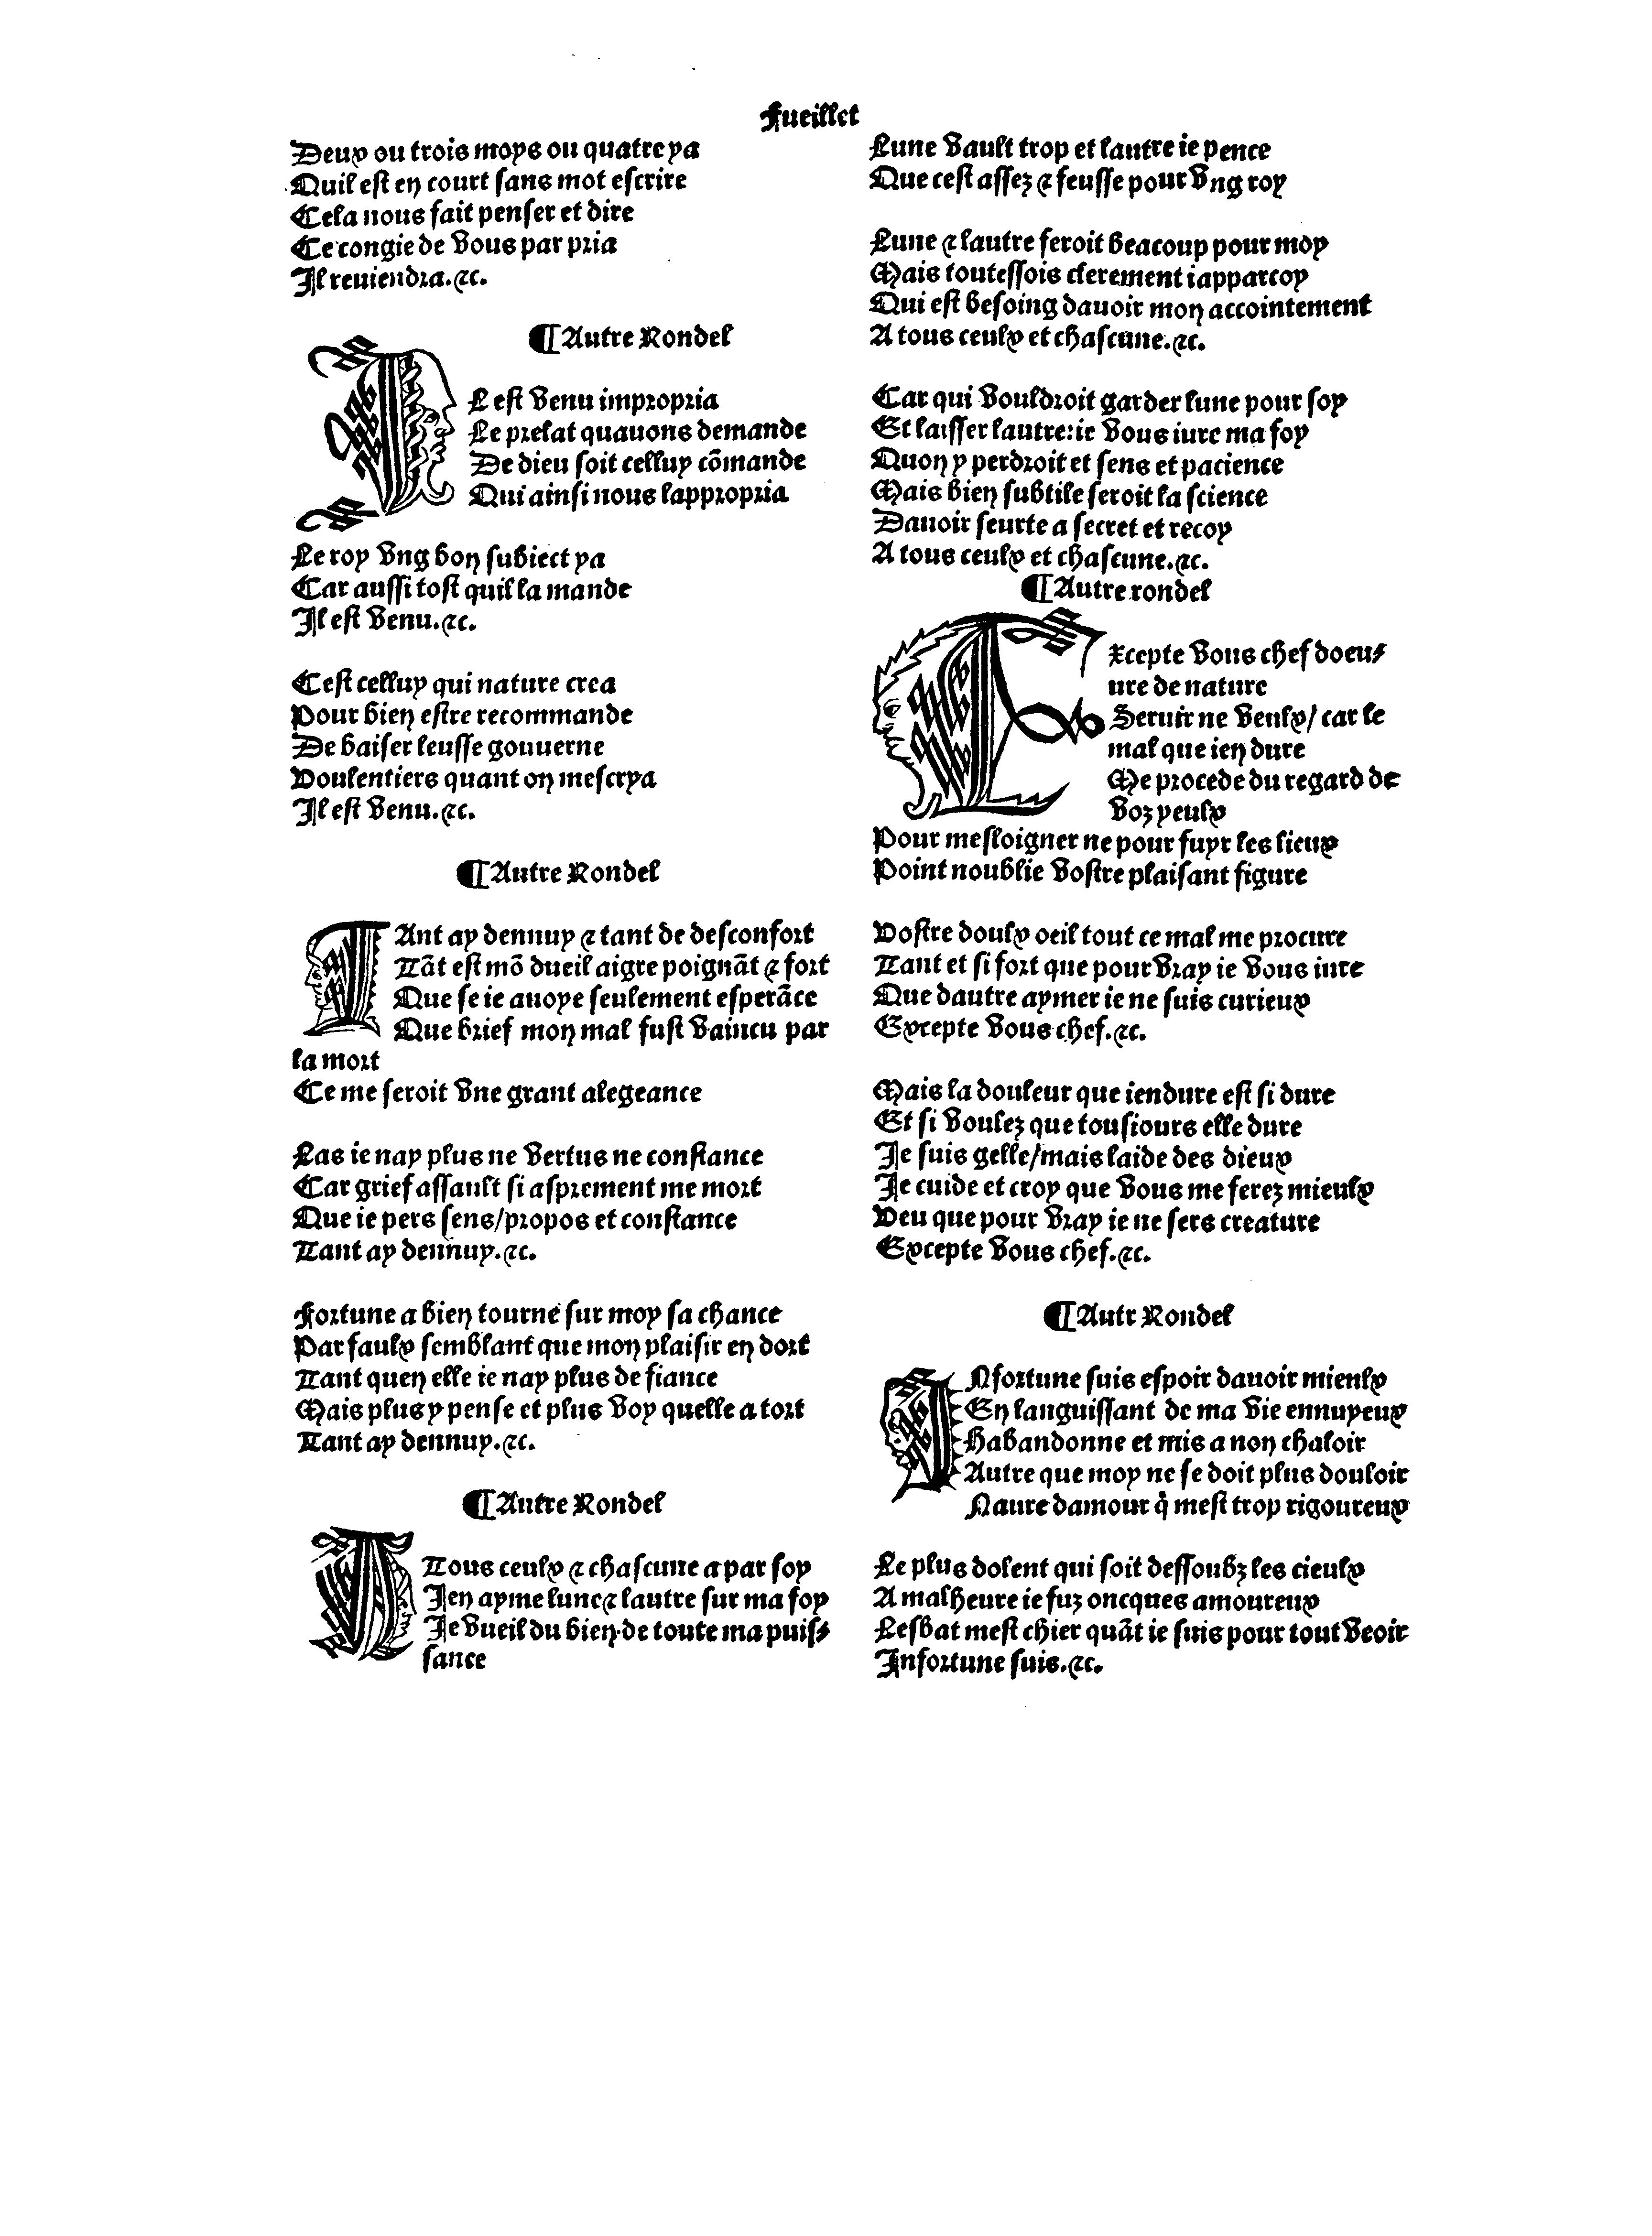 Fueillet
Deux ou trois moys ou quatre ya
Quil est en court sans mot escrire
Cela nous fait penser et dire
Ce congie de vous par pria
Il reuiendra.&c.
¶Autre Rondel
IL est venu impropria
Le prelat quauons demande
De dieu soit celluy cõmande
Qui ainsi nous lappropria
Le roy vng bon subiect ya
Car aussi tost quil la mande
Il est venu.&c.
Cest celluy qui nature crea
Pour bien estre recommande
De baiser leusse gouuerne
Voulentiers quant on mescrya
Il est venu.&c.
¶Autre Rondel
TAnt ay dennuy & tant de desconfort
Tãt est mõ dueil aigre poignãt & fort
Que se ie auoye seulement esperãce
Que brief mon mal fust vaincu par
la mort
Ce me seroit vne grant alegeance
Las ie nay plus ne vertus ne constance
Car grief assault si asprement me mort
Que ie pers sens/propos et constance
Tant ay dennuy.&c.
Fortune a bien tourne sur moy sa chance
Par faulx semblant que mon plaisir en dort
Tant quen elle ie nay plus de fiance
Mais plus y pense et plus voy quelle a tort
Tant ay dennuy.&c.
¶Autre Rondel
A Tous ceulx & chascune a par soy
Ien ayme lune& lautre sur ma foy
Ie vueil du bien de toute ma puis⸗
sance
Lune vault trop et lautre ie pence
Que cest assez & feusse pour vng roy
Lune & lautre feroit beacoup pour moy
Mais toutessois clerement iapparcoy
Qui est besoing dauoir mon accointement
A tous ceulx et chascune.&c.
Car qui vouldroit garder lune pour soy
Et laisser lautre:ie vous iure ma foy
Quon y perdroit et sens et pacience
Mais bien subtile seroit la science
Dauoir seurte a secret et recoy
A tous ceulx et chascune.&c.
¶Autre rondel
Excepte vous chef doeu⸗
ure de nature
Seruir ne veulx/ car le
mal que ien dure
Me procede du regard de
voz yeulx
Pour mesloigner ne pour fuyr les lieux
Point noublie vostre plaisant figure
Vostre doulx oeil tout ce mal me procure
Tant et si fort que pour vray ie vous iure
Que dautre aymer ie ne suis curieux
Excepte vous chef.&c.
Mais la douleur que iendure est si dure
Et si voulez que tousiours elle dure
Ie suis gelle/mais laide des dieux
Ie cuide et croy que vous me ferez mieulx
Veu que pour vray ie ne sers creature
Excepte vous chef.&c.
¶Autr Rondel
INfortune suis espoir dauoir mieulx
En languissant de ma vie ennuyeux
Habandonne et mis a non chaloir
Autre que moy ne se doit plus douloir
Naure damour q̃ mest trop rigoureux
Le plus dolent qui soit dessoubz les cieulx
A malheure ie fuz oncques amoureux
Lesbat mest chier quãt ie suis pour tout veoir
Infortune suis.&c.